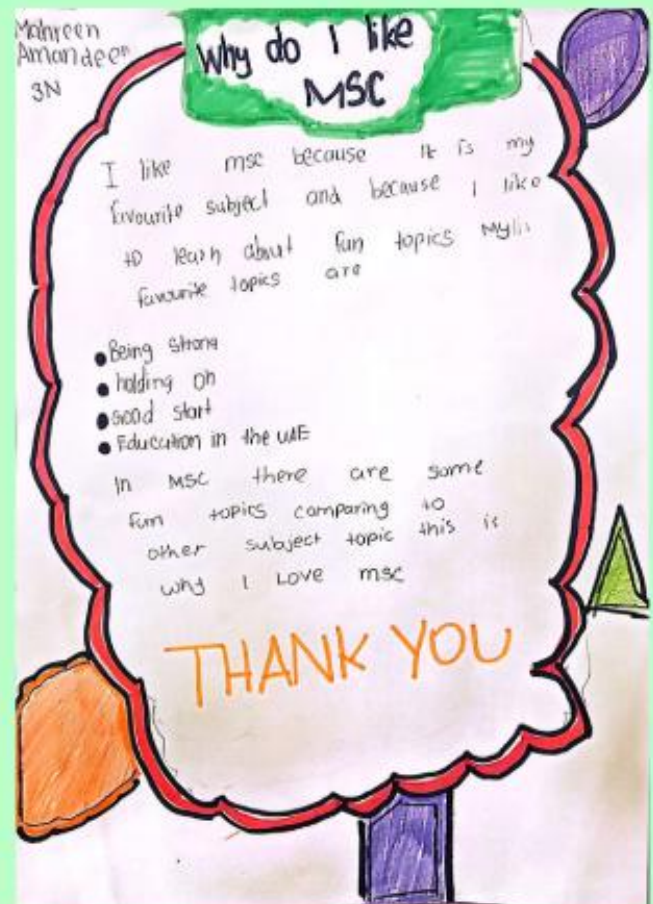 Mahreen
Amandeep
3N
Why do I like
MSC
I like msc because it is my
favourite subject and because I like
to learn about fun topics
favourite topics are
• Being strong
• holding on
• Good start
• Education in the UAE
In MSC there are some
fun topics comparing to
other subject topic this is
why I Love msc
THANK YOU